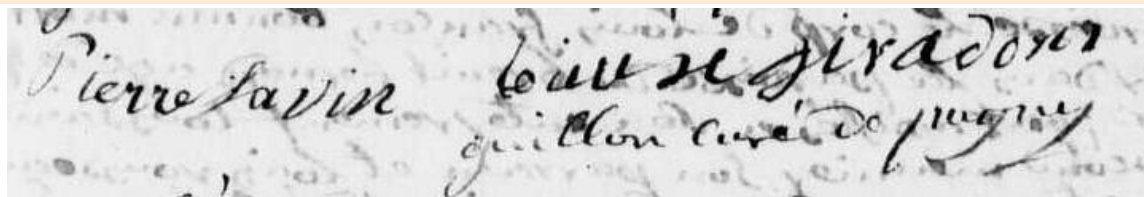 Pierre Savin Louise giradonn
guillon curé de pugny